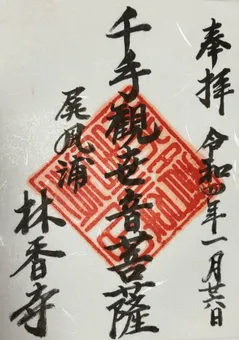 奉拝
令和四年一月廿六日
千手観世音菩薩
尾風浦
林香寺